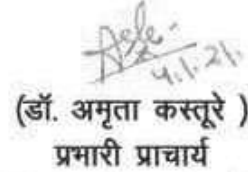 4.1.21.
(डॉ. अमृता कस्तूरे )
प्रभारी प्राचार्य